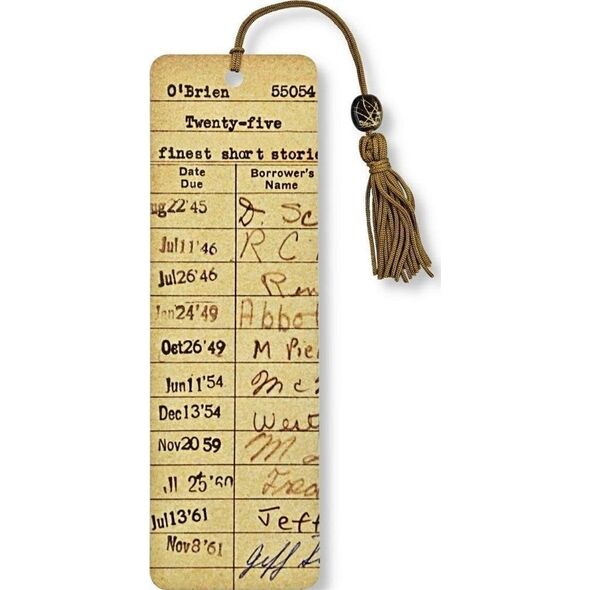 O'Brien 55054
Twenty-five
finest short storie
Date Due Borrower's Name
ug 22'45 D. Sc
Jul 11'46 R C
Jul 26'46 Ren
Jan 24'49 Abbot
Oct 26'49 M Pie
Jun 11'54 Mc
Dec 13'54 West
Nov 20 59 M
Jl 25'60 Fred
Jul 13'61 Jeff
Nov 8'61 Jeff